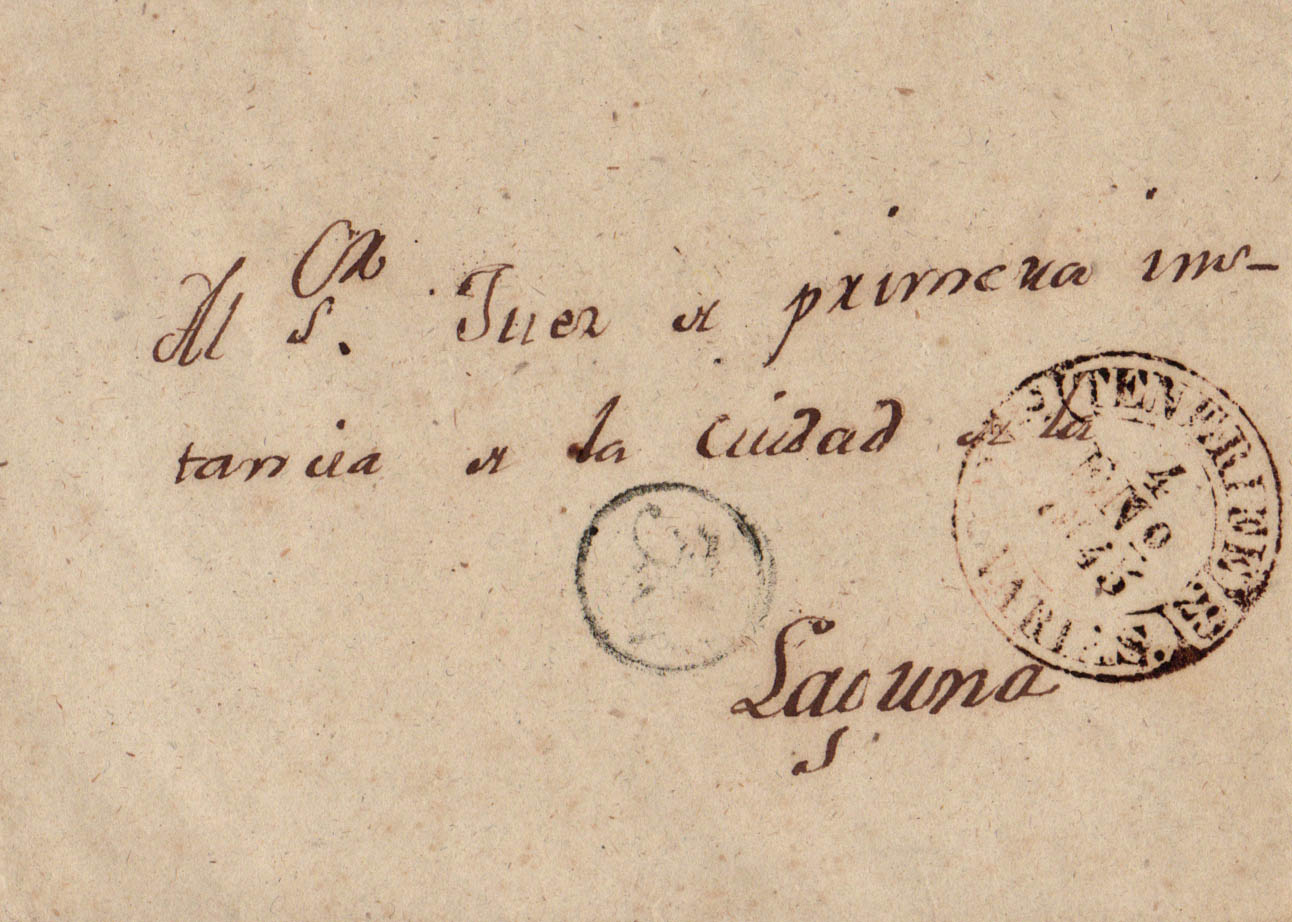 Al S.or Juez de primera ins-
tancia de la ciudad de la
Laguna
TENERIFE
4
ENO
1845
CANARIAS